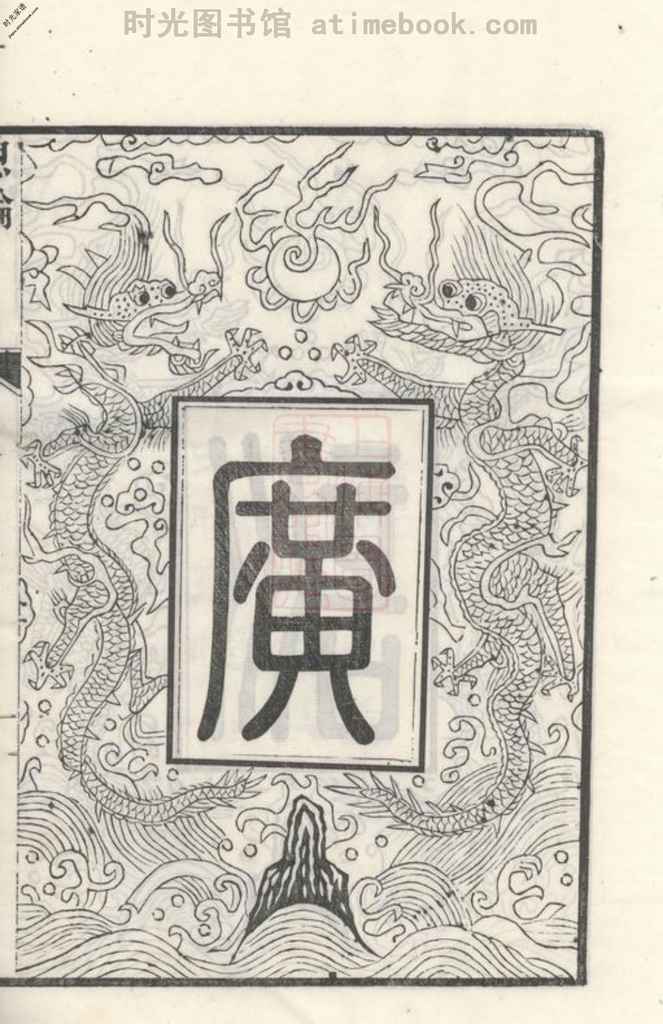 时光图书馆 atimebook.com
廣